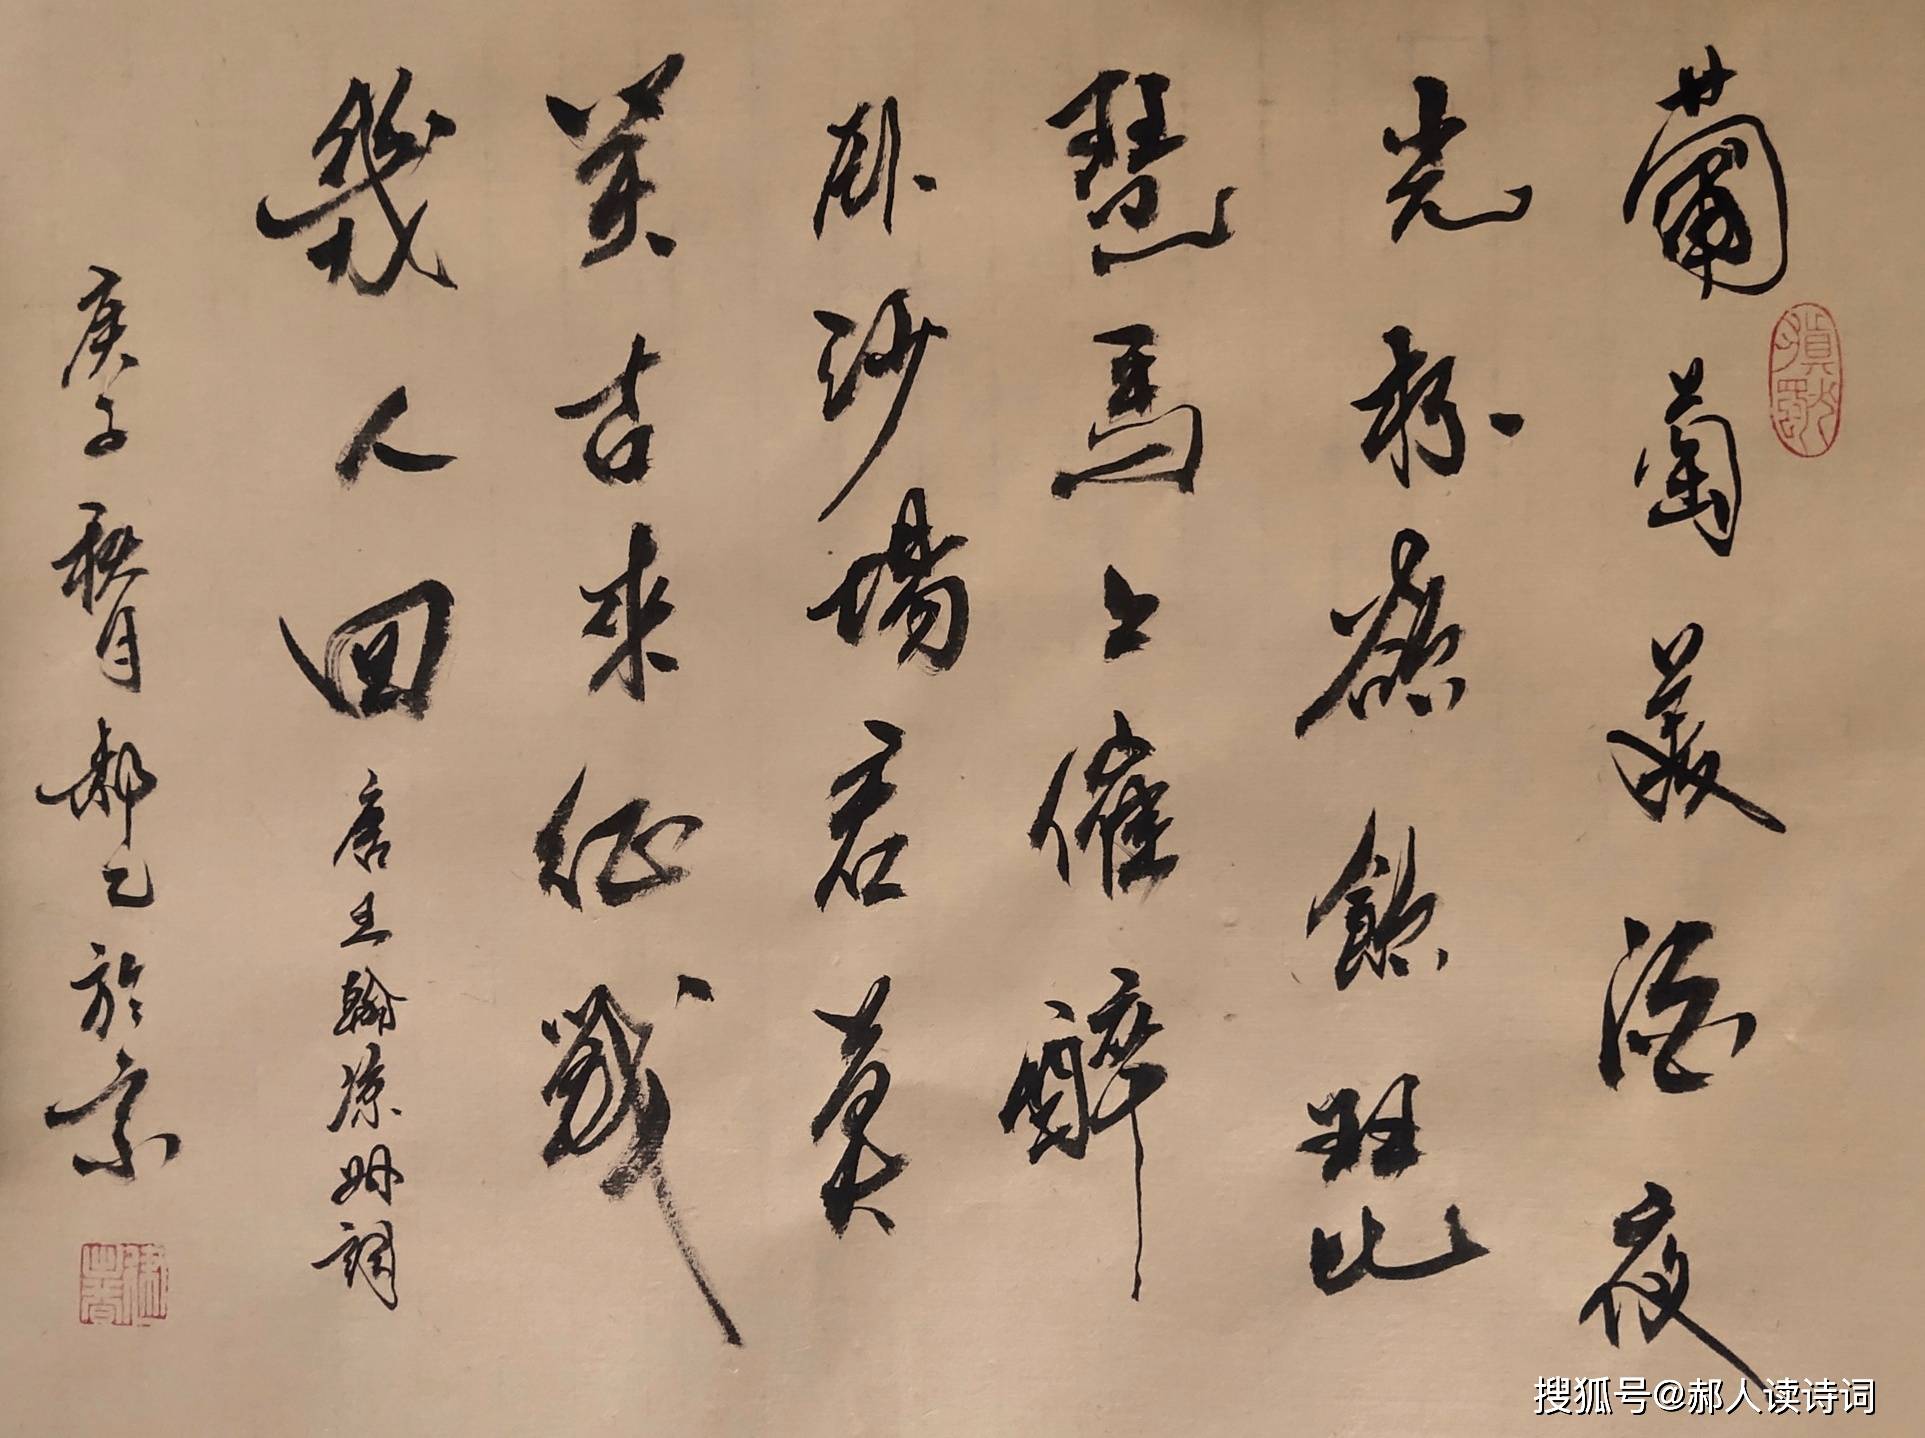 葡萄美酒夜
光杯欲飲琵
琶馬上催醉
卧沙場君莫
笑古来征戰
幾人回
唐王翰凉州詞
庚子秋月郝己於京
搜狐号@郝人读诗词